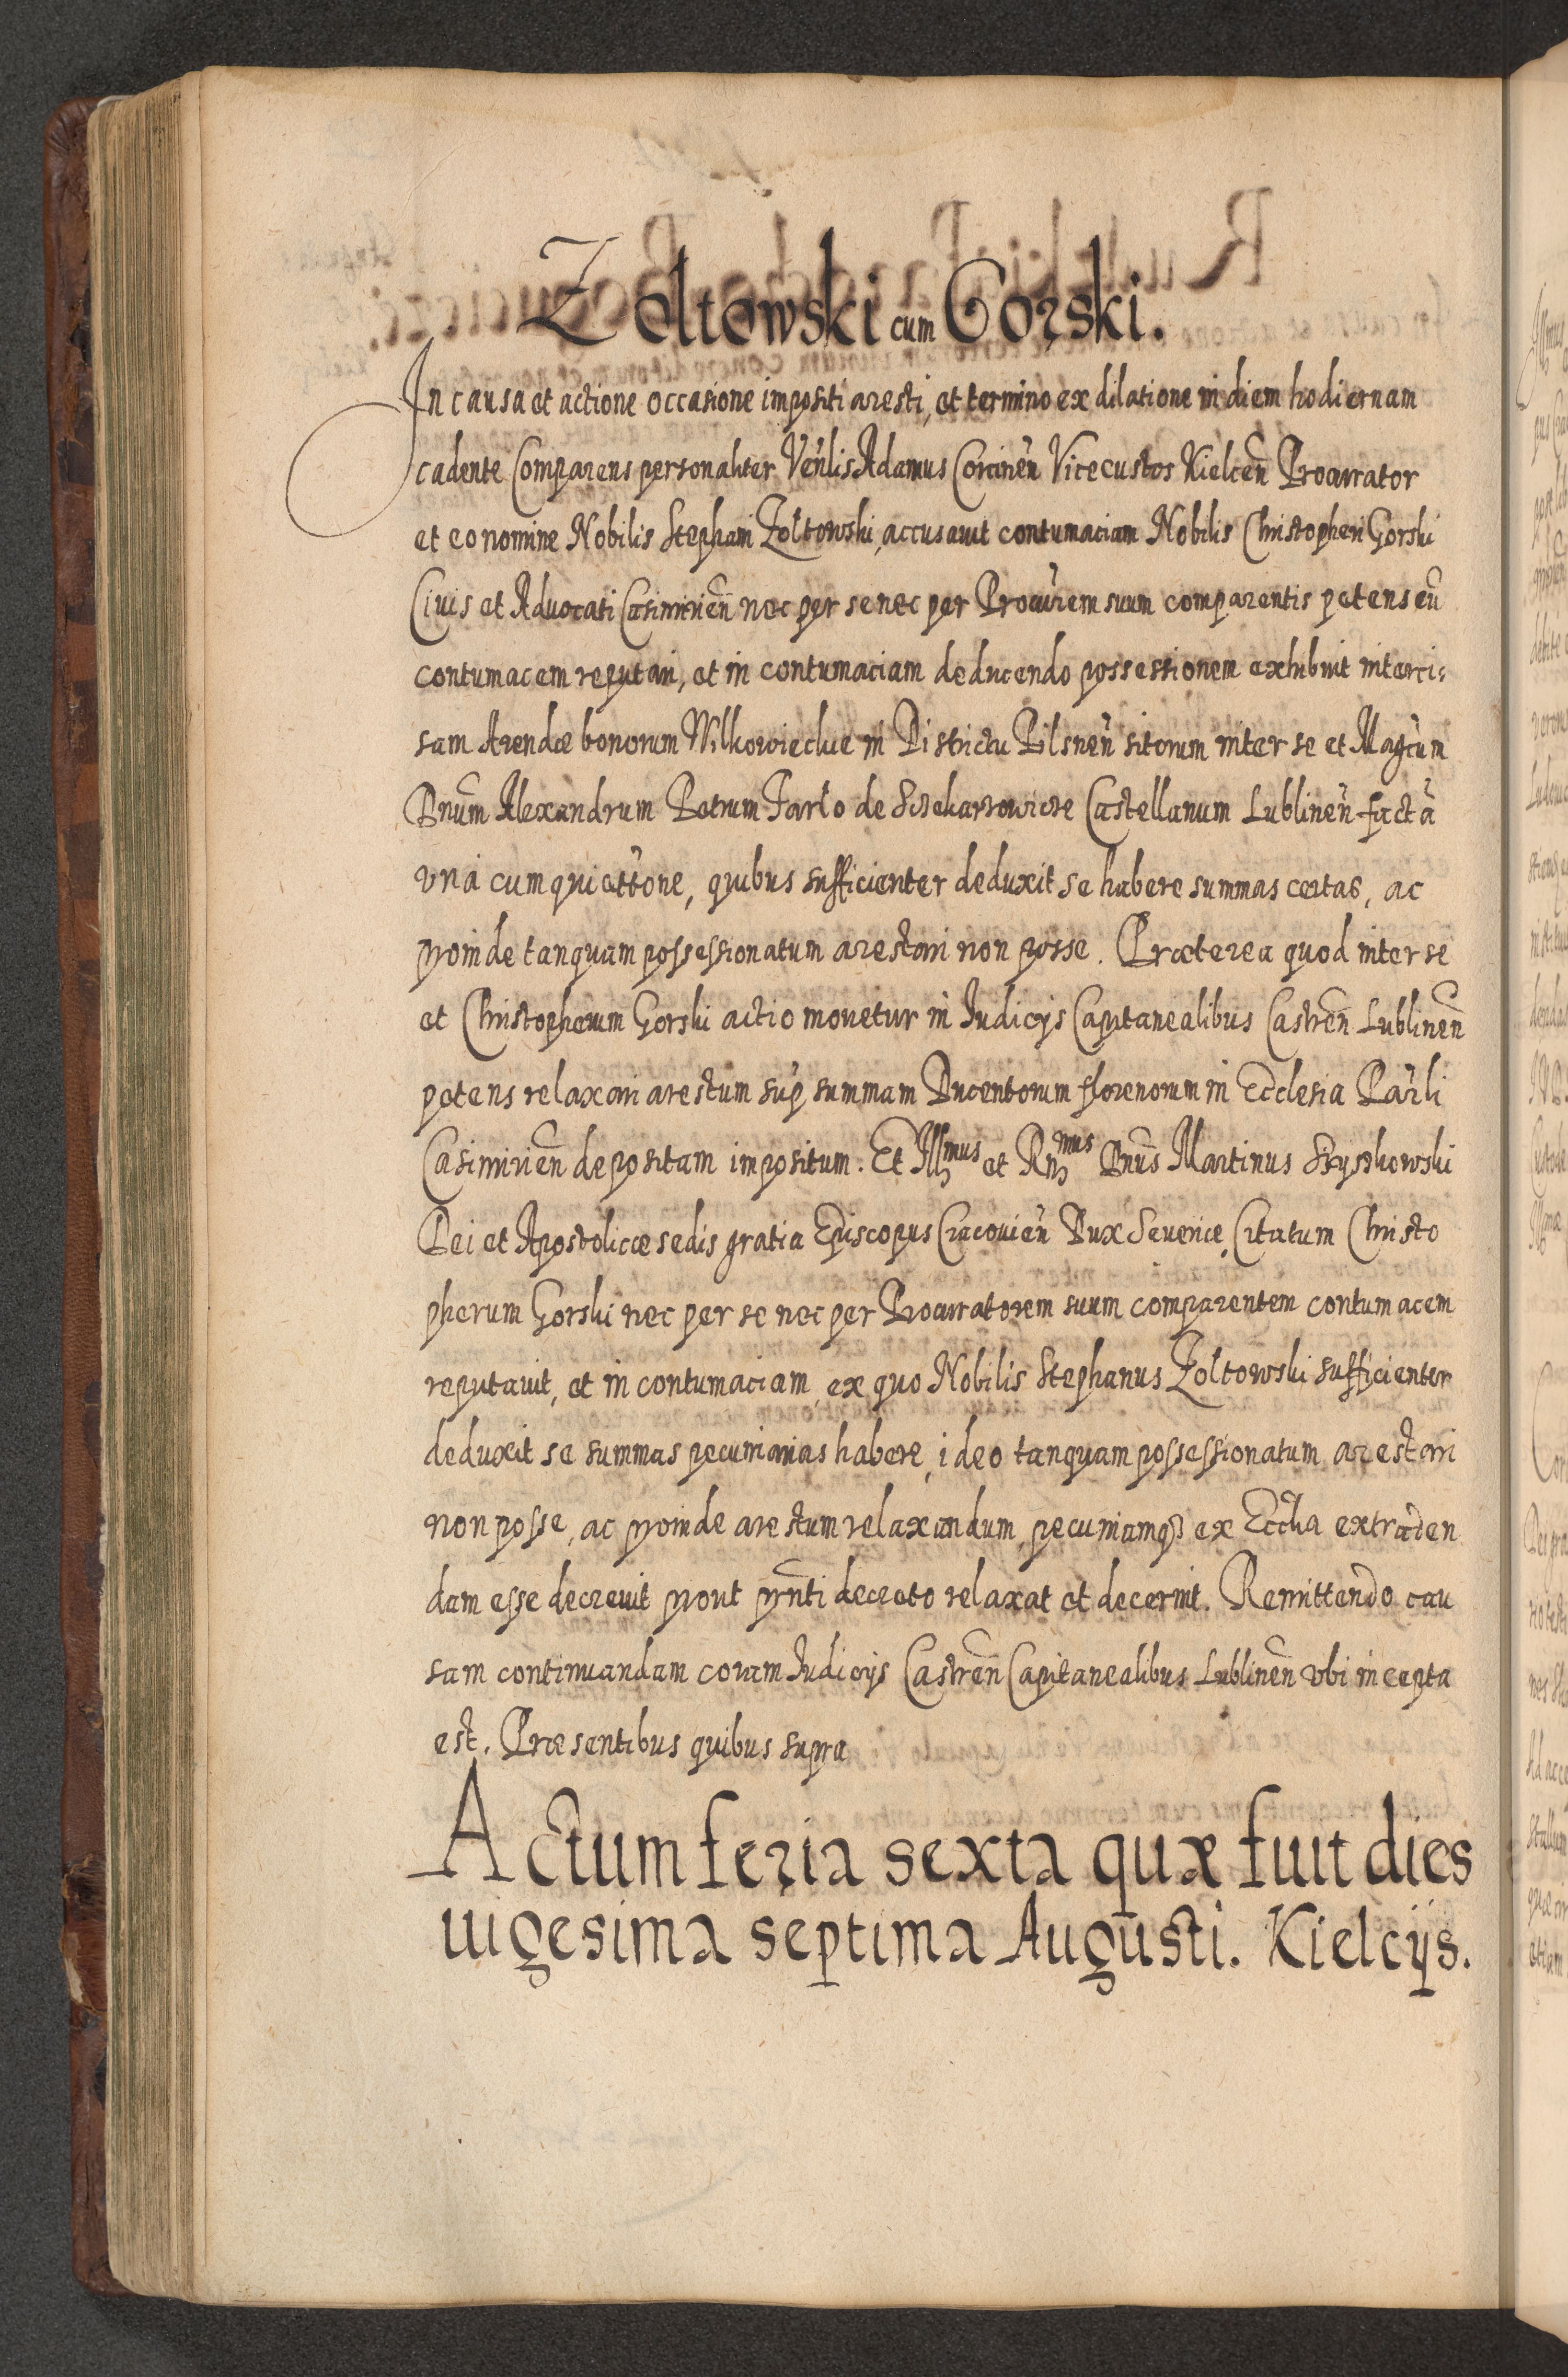 Zoltowski cum Gorski.
In causa et actione occasione impositi aresti, et termino ex dilatione in diem hodiernam
cadente Comparens personaliter Ven̄lis Adamus Corcinen̄ Vicecustos Kielcen̄ Procurator
et eo nomine Nobilis Stephani Zoltowski, accusavit contumaciam Nobilis Christopheri Gorski
Ciuis et Aduocati Casimirien̄ nec per se nec per Procūrem suum comparentis petens eū
contumacem reputari, et in contumaciam deducendo possessionem exhibuit interci-
sam Arendæ bonorum Wilkowieckie in Districtu Pilsnen̄ sitorum inter se et Magc̄um
Dnūm Alexandrum Petrum Tarło de Sczekarzowicze Castellanum Lublinen̄ factā
vnà cum quiettōne, quibus sufficienter deduxit se habere summas certas, ac
proinde tanquam possessionatum arestari non posse. Præterea quod inter se
et Christopherum Gorski actio mouetur in Iudicijs Capitanealibus Castren̄ Lublinen̄
petens relaxari arestum sup̄ summam Ducentorum florenorum in Ecclesia Par̄li
Casimirien̄ depositam impositum. Et Illmus et Rmus Dnūs Martinus Szyszkowski
Dei et Apostolicæ sedis gratia Episcopus Cracouien̄ Dux Seueriæ, Citatum Christo
pherum Gorski nec per se nec per Procuratorem suum comparentem contumacem
reputauit, et in contumaciam, ex quo Nobilis Stephanus Zoltowski sufficienter
deduxit se summas pecuniarias habere, ideo tanquam possessionatum arestari
non posse, ac proinde arestum relaxandum, pecuniamqꝫ ex Eccl̄ia extraden
dam esse decreuit prout prn̄ti decreto relaxat et decernit. Remittendo cau
sam continuandam coram Iudicijs Castren̄ Capitanealibus Lublinen̄ vbi incepta
est. Præsentibus quibus supra
Actum feria sexta quæ fuit dies
uigesima septima Augusti. Kielcijs.